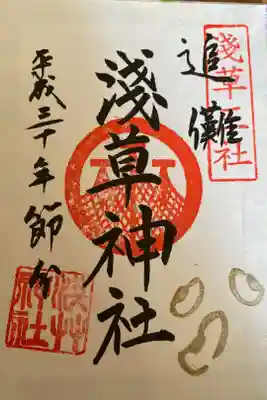 淺草神社
追儺
淺草神社
平成三十年節分
淺艸神社